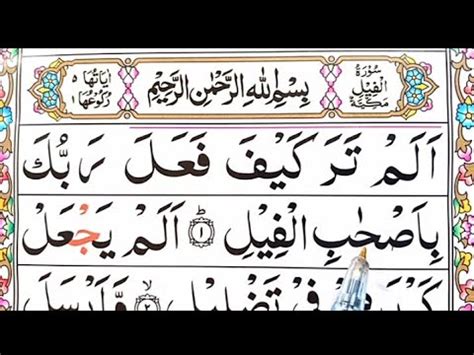 سُوْرَةُ الْفِيْلِ مَكِّيَّةٌ
بِسْمِ اللهِ الرَّحْمٰنِ الرَّحِيْمِ
اٰيَاتُهَا ٥ رُكُوْعُهَا ١
اَلَمْ تَرَ كَيْفَ فَعَلَ رَبُّكَ
بِاَصْحٰبِ الْفِيْلِ ؕ﴿۱﴾ اَلَمْ يَجْعَلْ
كَيْدَهُمْ فِيْ تَضْلِيْلٍ ۙ﴿۲﴾ وَّاَرْسَلَ